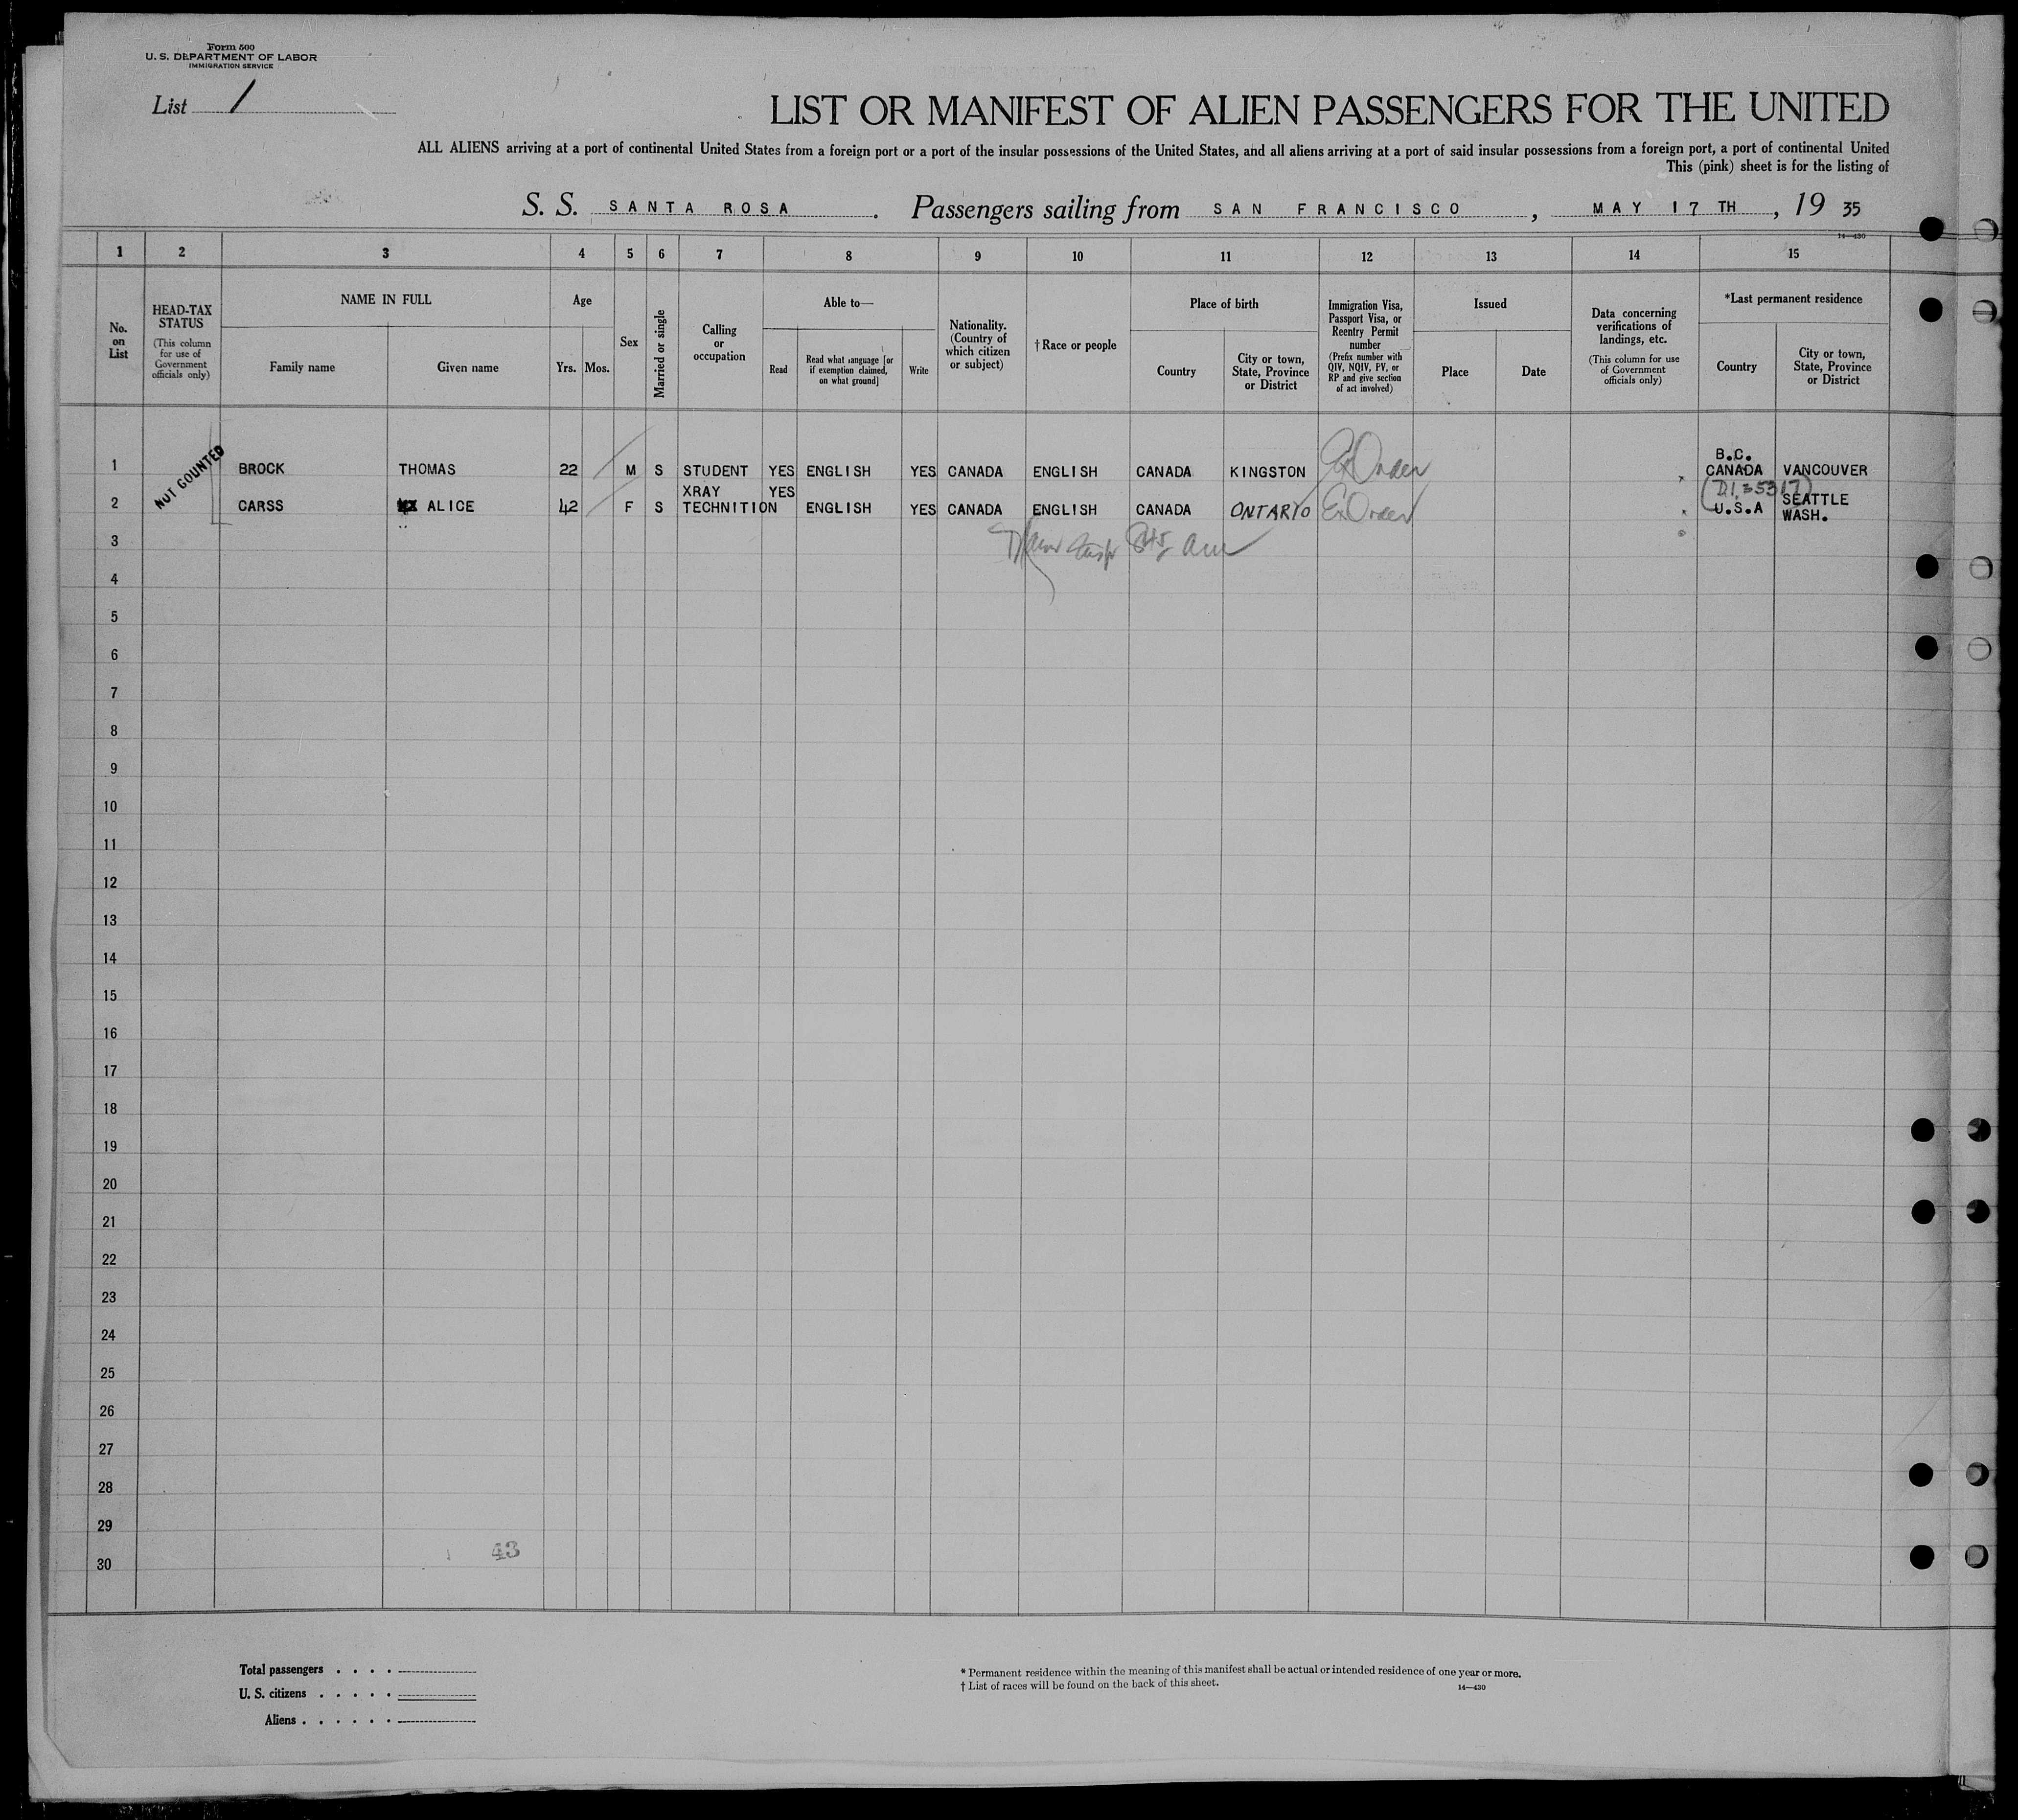 Form 500
U. S. DEPARTMENT OF LABOR
IMMIGRATION SERVICE
List 1
LIST OR MANIFEST OF ALIEN PASSENGERS FOR THE UNITED
ALL ALIENS arriving at a port of continental United States from a foreign port or a port of the insular possessions of the United States, and all aliens arriving at a port of said insular possessions from a foreign port, a port of continental United
This (pink) sheet is for the listing of
S. S. SANTA ROSA. Passengers sailing from SAN FRANCISCO, MAY 17 TH, 19 35
14—430
1 2 3 4 5 6 7 8 9 10 11 12 13 14 15
No. on List
HEAD-TAX STATUS
(This column for use of Government officials only)
NAME IN FULL
Family name
Given name
Age
Yrs. Mos.
Sex
Married or single
Calling or occupation
Able to—
Read
Read what language [or if exemption claimed, on what ground]
Write
Nationality. (Country of which citizen or subject)
† Race or people
Place of birth
Country
City or town, State, Province or District
Immigration Visa, Passport Visa, or Reentry Permit number
(Prefix number with QIV, NQIV, PV, or RP and give section of act involved)
Issued
Place
Date
Data concerning verifications of landings, etc.
(This column for use of Government officials only)
*Last permanent residence
Country
City or town, State, Province or District
NOT COUNTED
1 BROCK THOMAS 22 M S STUDENT YES ENGLISH YES CANADA ENGLISH CANADA KINGSTON Ex Order B.C. CANADA VANCOUVER
2 CARSS ALICE 42 F S XRAY TECHNITION YES ENGLISH YES CANADA ENGLISH CANADA ONTARIO Ex Order U.S.A SEATTLE WASH.
3 845 am
4
5
6
7
8
9
10
11
12
13
14
15
16
17
18
19
20
21
22
23
24
25
26
27
28
29
43
30
Total passengers . . . .
U. S. citizens . . . . .
Aliens . . . . . .
* Permanent residence within the meaning of this manifest shall be actual or intended residence of one year or more.
† List of races will be found on the back of this sheet.
14—430